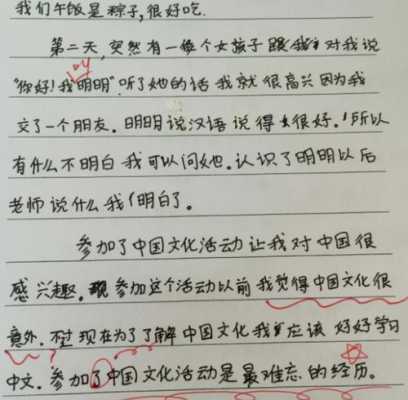 我们午饭是粽子,很好吃.
第二天,突然有一个女孩子 对我说
"你好!我明明".听了她的话 我就很高兴因为我
叫
交了一个朋友。明明说汉语说得很好.所以
有什么不明白 我可以问她.认识了明明以后
老师说什么我 明白了。
参加了中国文化活动让我对中国很
感兴趣。参加这个活动以前 我觉得中国文化很
意外.不过 现在为了了解 中国文化我 应该 好好学习
中文。参加了中国文化活动是最难忘的经历。